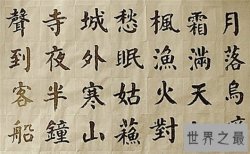 月落烏
霜滿天
楓漁火對
愁眠姑蘓
城外寒山
寺夜半鐘
聲到客船
世界之最